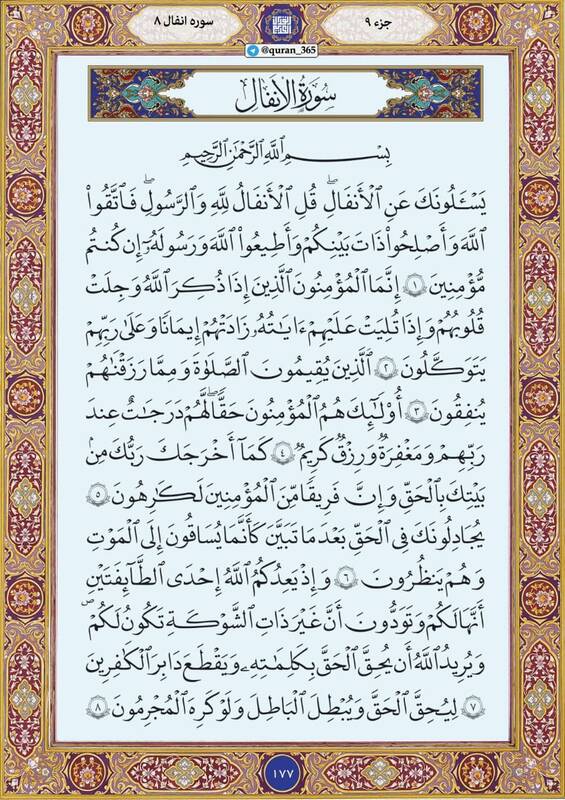 جزء ۹
سوره انفال ۸
@quran_365
سُورَةُ الأَنفَالِ
بِسْمِ ٱللَّهِ ٱلرَّحْمَٰنِ ٱلرَّحِيمِ
يَسْـَٔلُونَكَ عَنِ ٱلْأَنفَالِۖ قُلِ ٱلْأَنفَالُ لِلَّهِ وَٱلرَّسُولِۖ فَٱتَّقُوا۟
ٱللَّهَ وَأَصْلِحُوا۟ ذَاتَ بَيْنِكُمْ وَأَطِيعُوا۟ ٱللَّهَ وَرَسُولَهُۥٓ إِن كُنتُم
مُّؤْمِنِينَ ١ إِنَّمَا ٱلْمُؤْمِنُونَ ٱلَّذِينَ إِذَا ذُكِرَ ٱللَّهُ وَجِلَتْ
قُلُوبُهُمْ وَإِذَا تُلِيَتْ عَلَيْهِمْ ءَايَٰتُهُۥ زَادَتْهُمْ إِيمَٰنًا وَعَلَىٰ رَبِّهِمْ
يَتَوَكَّلُونَ ٢ ٱلَّذِينَ يُقِيمُونَ ٱلصَّلَوٰةَ وَمِمَّا رَزَقْنَٰهُمْ
يُنفِقُونَ ٣ أُو۟لَٰٓئِكَ هُمُ ٱلْمُؤْمِنُونَ حَقًّاۚ لَّهُمْ دَرَجَٰتٌ عِندَ
رَبِّهِمْ وَمَغْفِرَةٌ وَرِزْقٌ كَرِيمٌ ٤ كَمَآ أَخْرَجَكَ رَبُّكَ مِنۢ
بَيْتِكَ بِٱلْحَقِّ وَإِنَّ فَرِيقًا مِّنَ ٱلْمُؤْمِنِينَ لَكَٰرِهُونَ ٥
يُجَٰدِلُونَكَ فِى ٱلْحَقِّ بَعْدَ مَا تَبَيَّنَ كَأَنَّمَا يُسَاقُونَ إِلَى ٱلْمَوْتِ
وَهُمْ يَنظُرُونَ ٦ وَإِذْ يَعِدُكُمُ ٱللَّهُ إِحْدَى ٱلطَّآئِفَتَيْنِ
أَنَّهَا لَكُمْ وَتَوَدُّونَ أَنَّ غَيْرَ ذَاتِ ٱلشَّوْكَةِ تَكُونُ لَكُمْ
وَيُرِيدُ ٱللَّهُ أَن يُحِقَّ ٱلْحَقَّ بِكَلِمَٰتِهِۦ وَيَقْطَعَ دَابِرَ ٱلْكَٰفِرِينَ
٧ لِيُحِقَّ ٱلْحَقَّ وَيُبْطِلَ ٱلْبَٰطِلَ وَلَوْ كَرِهَ ٱلْمُجْرِمُونَ ٨
١٧٧